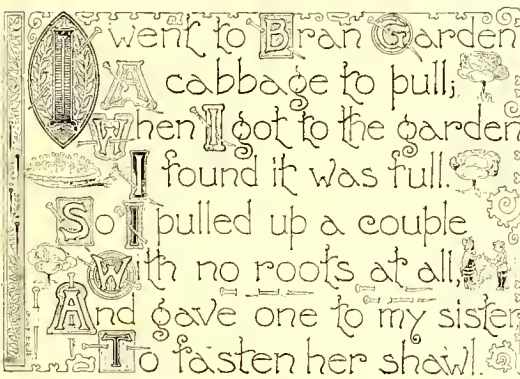 I went to Bran Garden
A cabbage to pull;
When I got to the garden
I found it was full.
So I pulled up a couple
With no roots at all,
And gave one to my sister
To fasten her shawl.